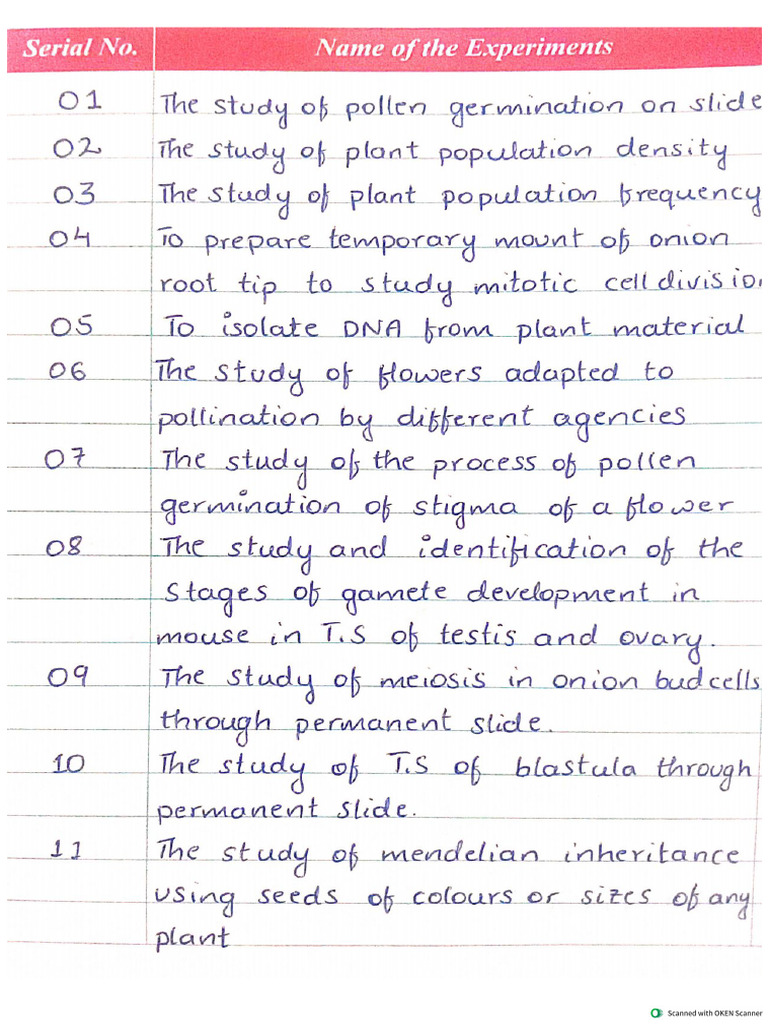 Serial No. Name of the Experiments
01 The study of pollen germination on slide
02 The study of plant population density
03 The study of plant population frequency
04 To prepare temporary mount of onion
root tip to study mitotic cell division
05 To isolate DNA from plant material
06 The study of flowers adapted to
pollination by different agencies
07 The study of the process of pollen
germination of stigma of a flower
08 The study and identification of the
stages of gamete development in
mouse in T.S of testis and ovary.
09 The study of meiosis in onion bud cells
through permanent slide.
10 The study of T.S of blastula through
permanent slide.
11 The study of mendelian inheritance
using seeds of colours or sizes of any
plant
Scanned with OKEN Scanner